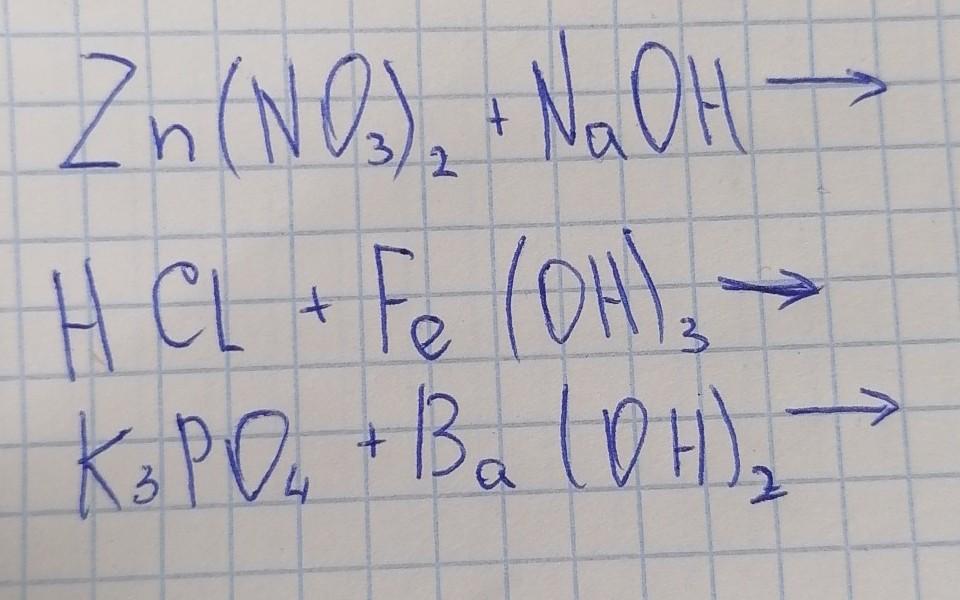 Zn(NO₃)₂ + NaOH →
HCl + Fe(OH)₃ →
K₃PO₄ + Ba(OH)₂ →